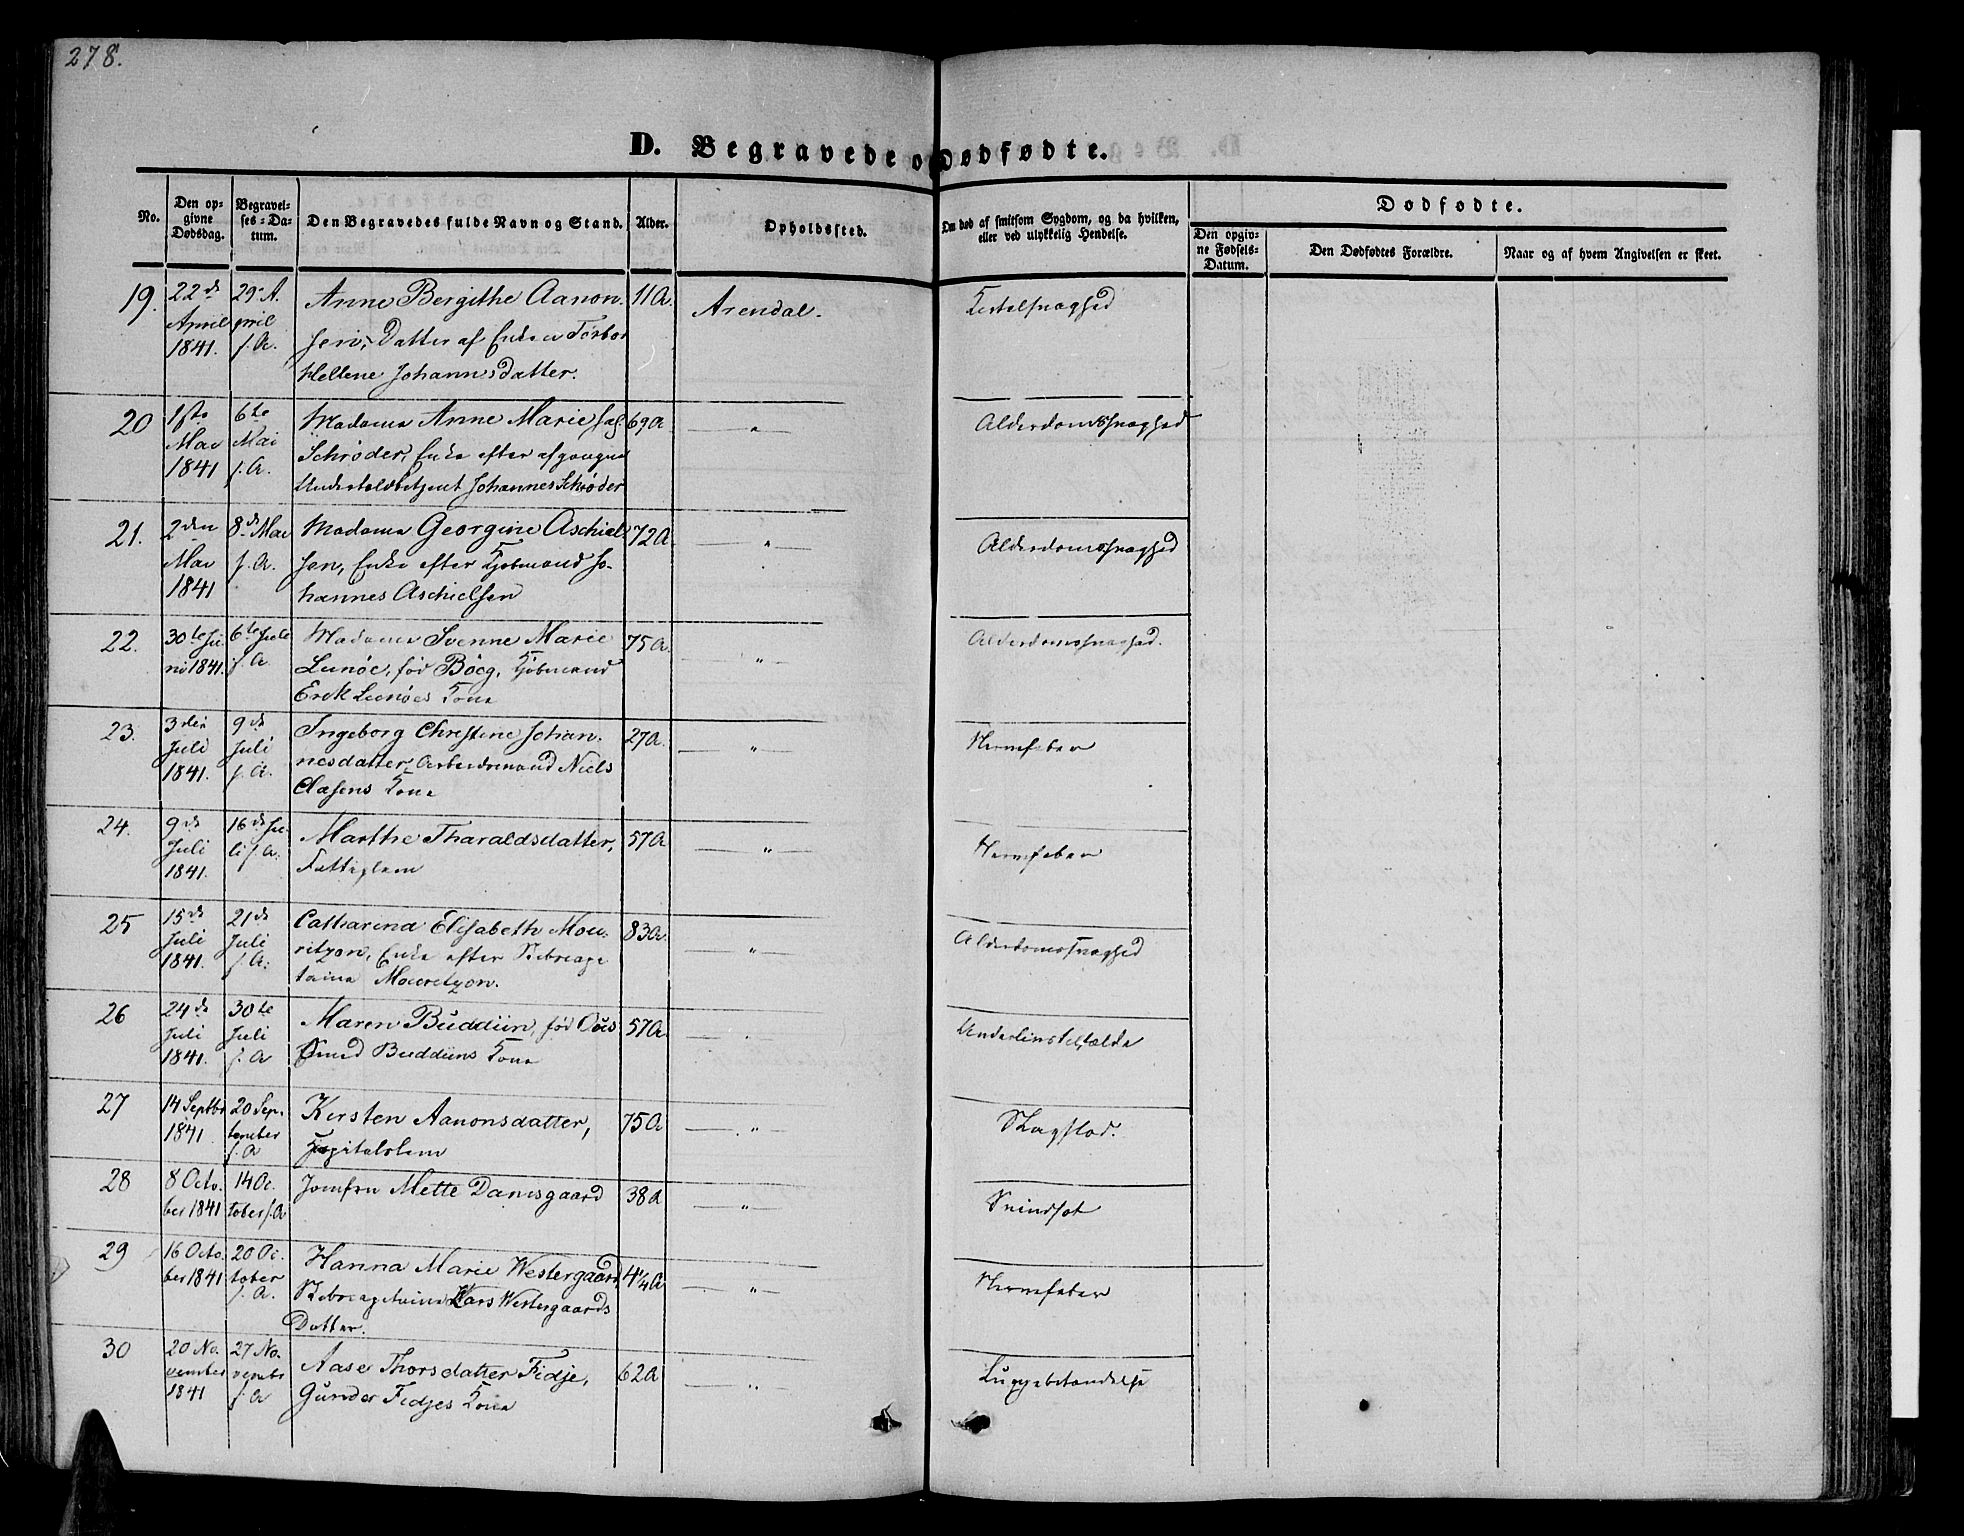 278.
D. Begravede og Dødfødte.
No.
Den op-
givne
Dødsdag.
Begravel-
ses-Da-
tum.
Den Begravedes fulde Navn og Stand.
Alder.
Opholdssted.
Om død af smitsom Sygdom, og da hvilken,
eller ved ulykkelig Hendelse.
Dødfødte.
Den opgiv-
ne Fødsels-
Datum.
Den Dødfødtes Forældre.
Naar og af hvem Angivelsen er skeet.
19.
22de
April
1841.
29 A.
pril
s. A.
Anne Bergithe Aanon-
sen, Datter af Enken Torbor
Hellene Johannsdatter.
11 A.
Arendal.
Kirtelsvaghed
20
1ste
Mai
1841
6te
Mai
s. A.
Madame Anne Marie
Schrøder, Enke efter afgangne
Undertoldbetjent Johannes Schrøder
69 A
— " —
Alderdomssvaghed
21.
2den
Mai
1841
8de Mai
s. A.
Madame Georgine Aschiel-
sen, Enke efter Kjøbmand Jo-
hannes Aschielsen
72 A.
— " —
Alderdomssvaghed
22.
30te Ju-
ni 1841.
6te Juli
s. A
Madame Svenne Marie
Lunøe, før Böeg, Kjøbmand
Erik Lunøes Kone
75 A.
— " —
Alderdomssvaghed.
23.
3die
Juli
1841.
9de
Juli
s. A.
Ingeborg Christine Johan-
nesdatter, Arbeidsmand Niels
Clasens Kone
27 A.
— " —
Nervefeber
24.
9de
Juli
1841.
16de Ju-
li s. A.
Marthe Tharaldsdatter,
Fattiglem
57 A
— " —
Nervefeber
25
15de
Juli
1841.
21de
Juli
s. A.
Catharina Elisabeth Mou-
ritzon, Enke efter Skibscap-
taine Mouritzon.
83 A.
— " —
Alderdomssvaghed
26
24de
Juli
1841.
30te
Juli
s. A
Maren Buddün, fød
Buddüns Kone
57 A.
— " —
Underlivstilfælde
27
14 Septbr
1841.
20 Sep-
tember
s. A
Kirsten Aanonsdatter,
Hospitalslem
75 A
— " —
Slagflod.
28
8 Octo-
ber 1841
14 Oc-
tober s. A
Jomfru Mette Damsgaard
38 A
— " —
Svindsot
29
16 Octo-
ber 1841
20 Oc-
tober
s. A.
Hanna Marie Westergaard
Skibscaptaine Lars Westergaards
Datter.
4 1/4 A
— " —
Nervefeber
30
20 No-
vember
1841
27 No-
vembr
s. A
Aase Thorsdatter Fidje,
Gunder Fidjes Kone
62 A
— " —
Lungebetændelse